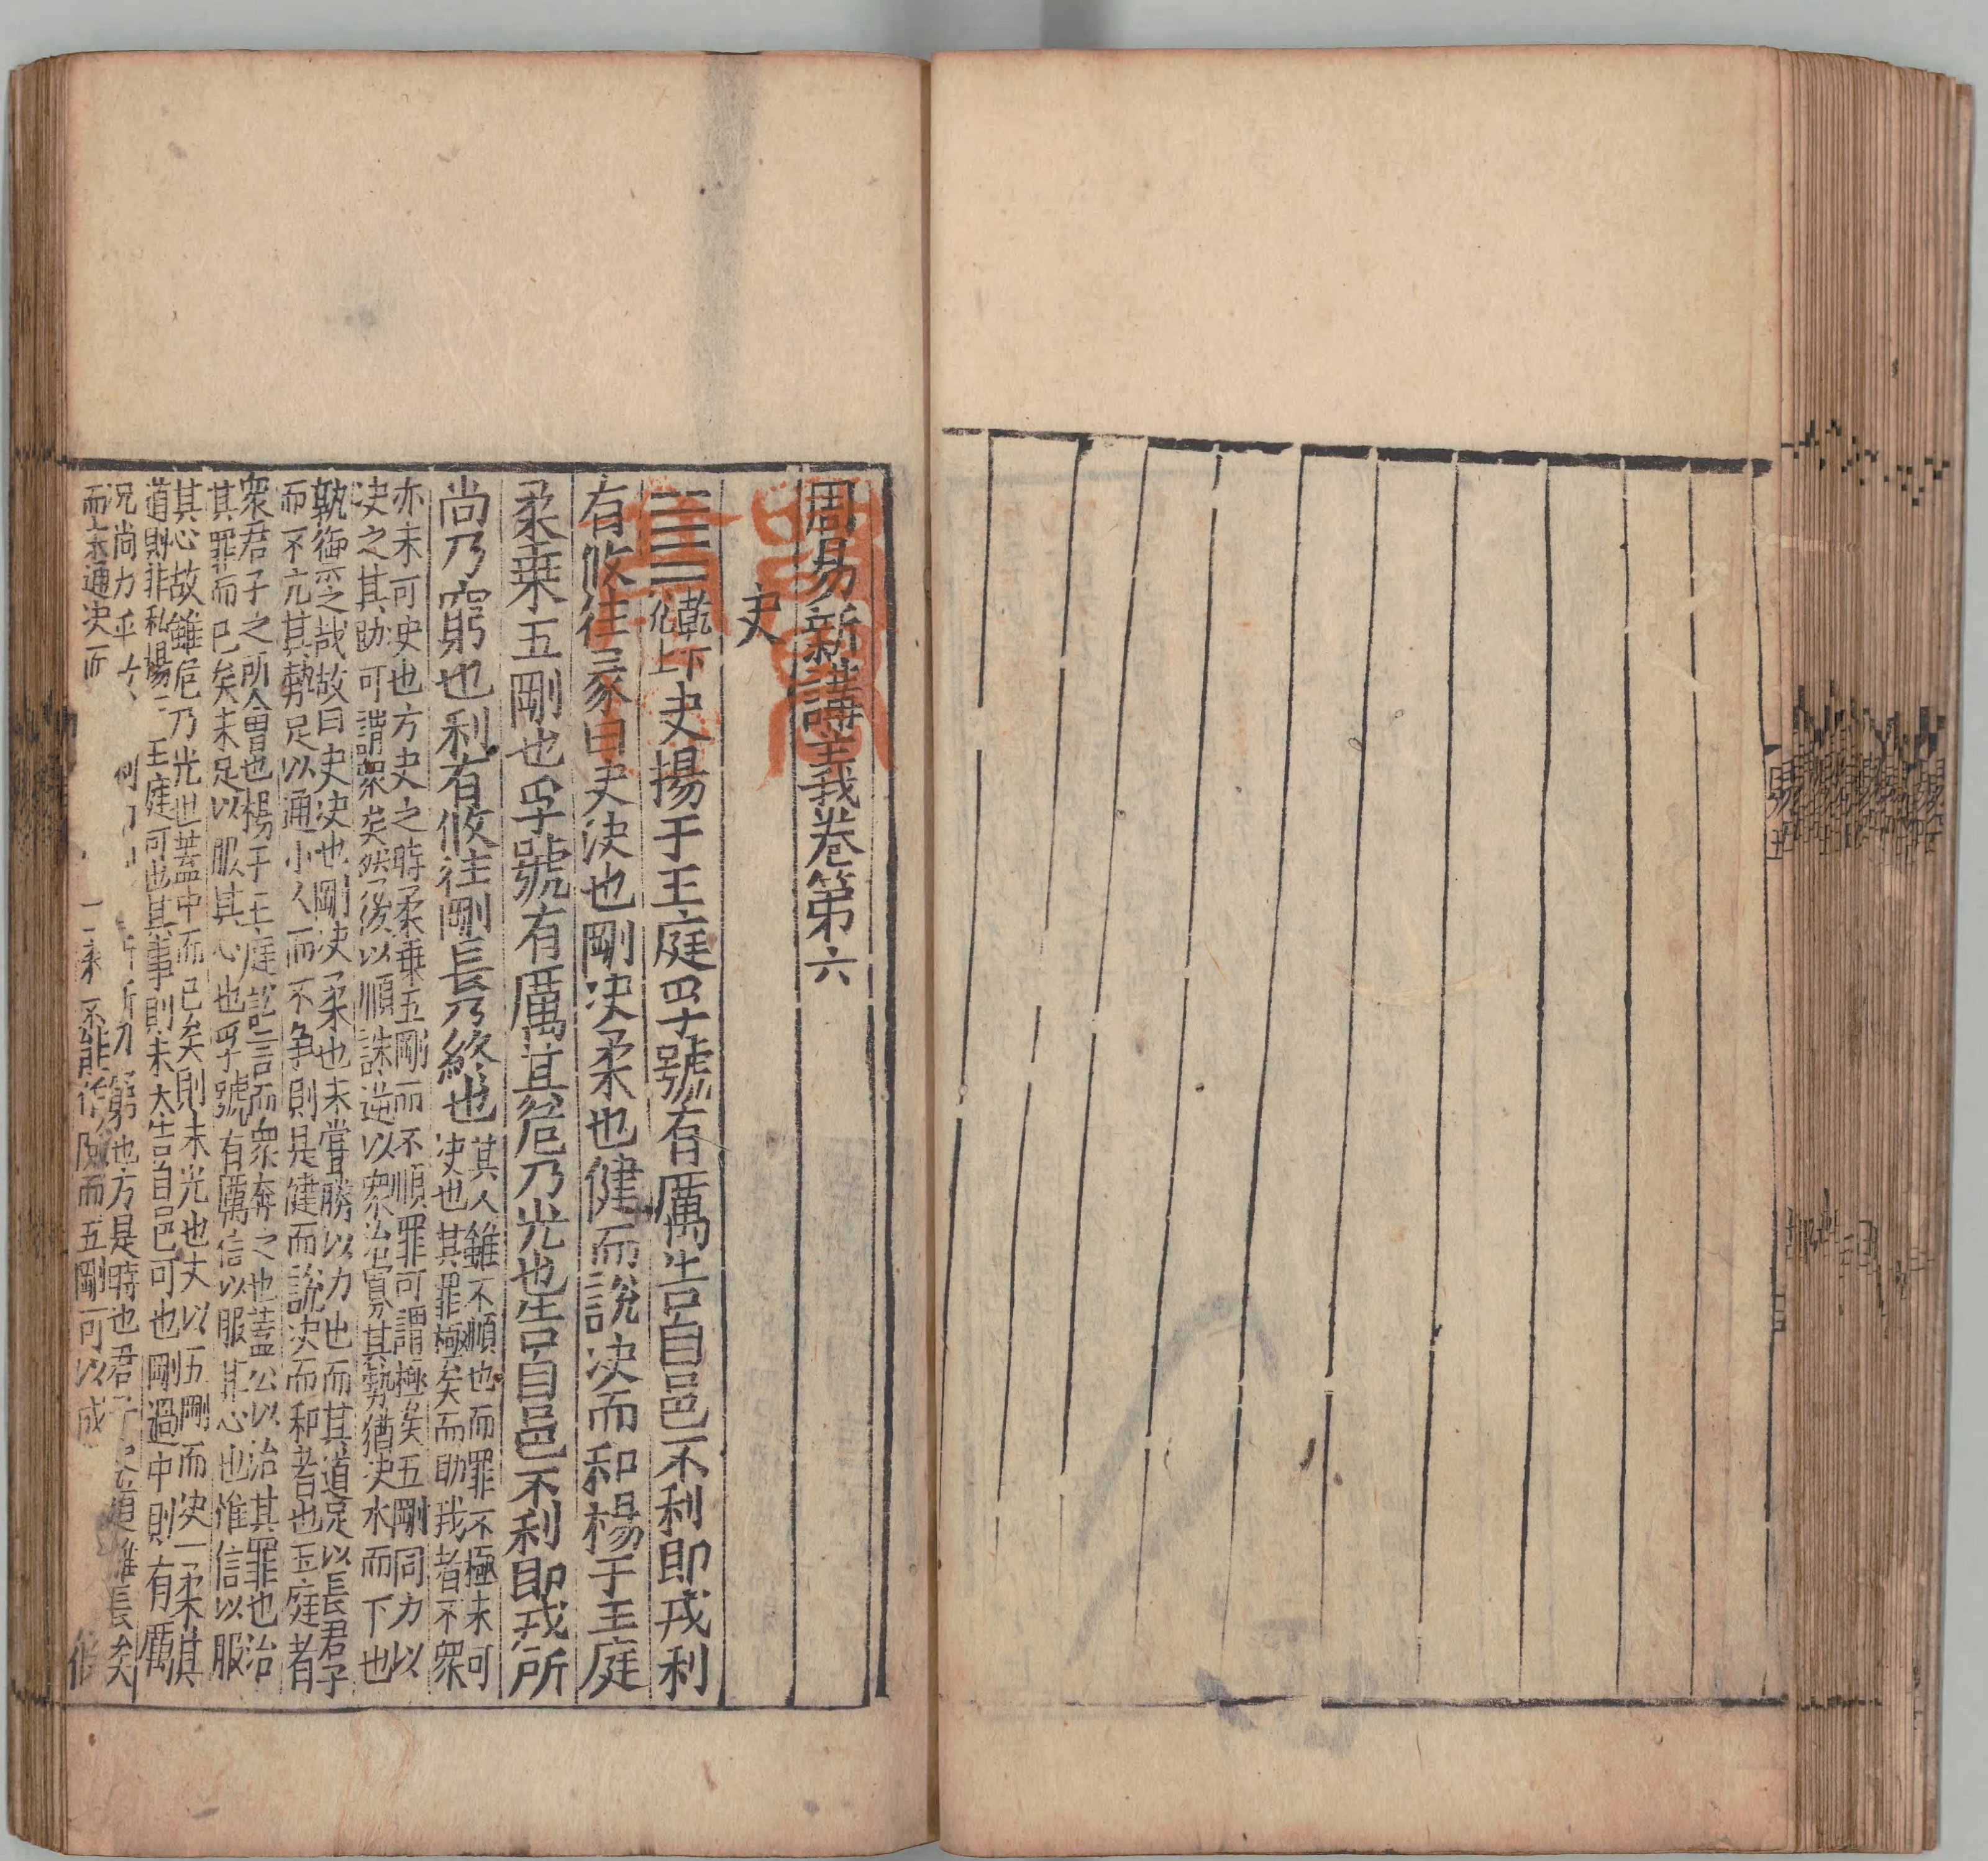 周易新講義卷第六
夬
乾下兌上夬揚于王庭孚號有厲告自邑不利即戎利
有攸往彖曰夬決也剛決柔也健而說決而和楊于王庭
柔乗五剛也孚號有厲其危乃光也告自邑不利即戎所
尚乃窮也利有攸往剛長乃終也其人雖不順也而罪不極未可
決也其罪極矣而助我者不衆
亦未可夬也方夬之時柔乗五剛而不順罪可謂極矣五剛同力以
決之其助可謂衆矣然後以順誅逆以衆治寡其勢猶決水而下也
孰御之哉故曰夬決也剛決柔也未嘗勝以力也而其道足以長君子
而不亢其勢足以通小人而不争則是健而說決而和者也王庭者
衆君子之所會也楊于王庭說言而衆奔之也蓋公以治其罪也治
其罪而已矣未足以服其心也孚號有厲信以服其心也惟信以服
其心故雖危乃光也蓋中而已矣則未光也夫以五剛而決一柔其
道則非私揚王庭可也其事則未大告自邑可也剛過中則有厲
况尚力乎窮也方是時也君子道雖長矣
而未通決而柔不能作陝而五剛可以成